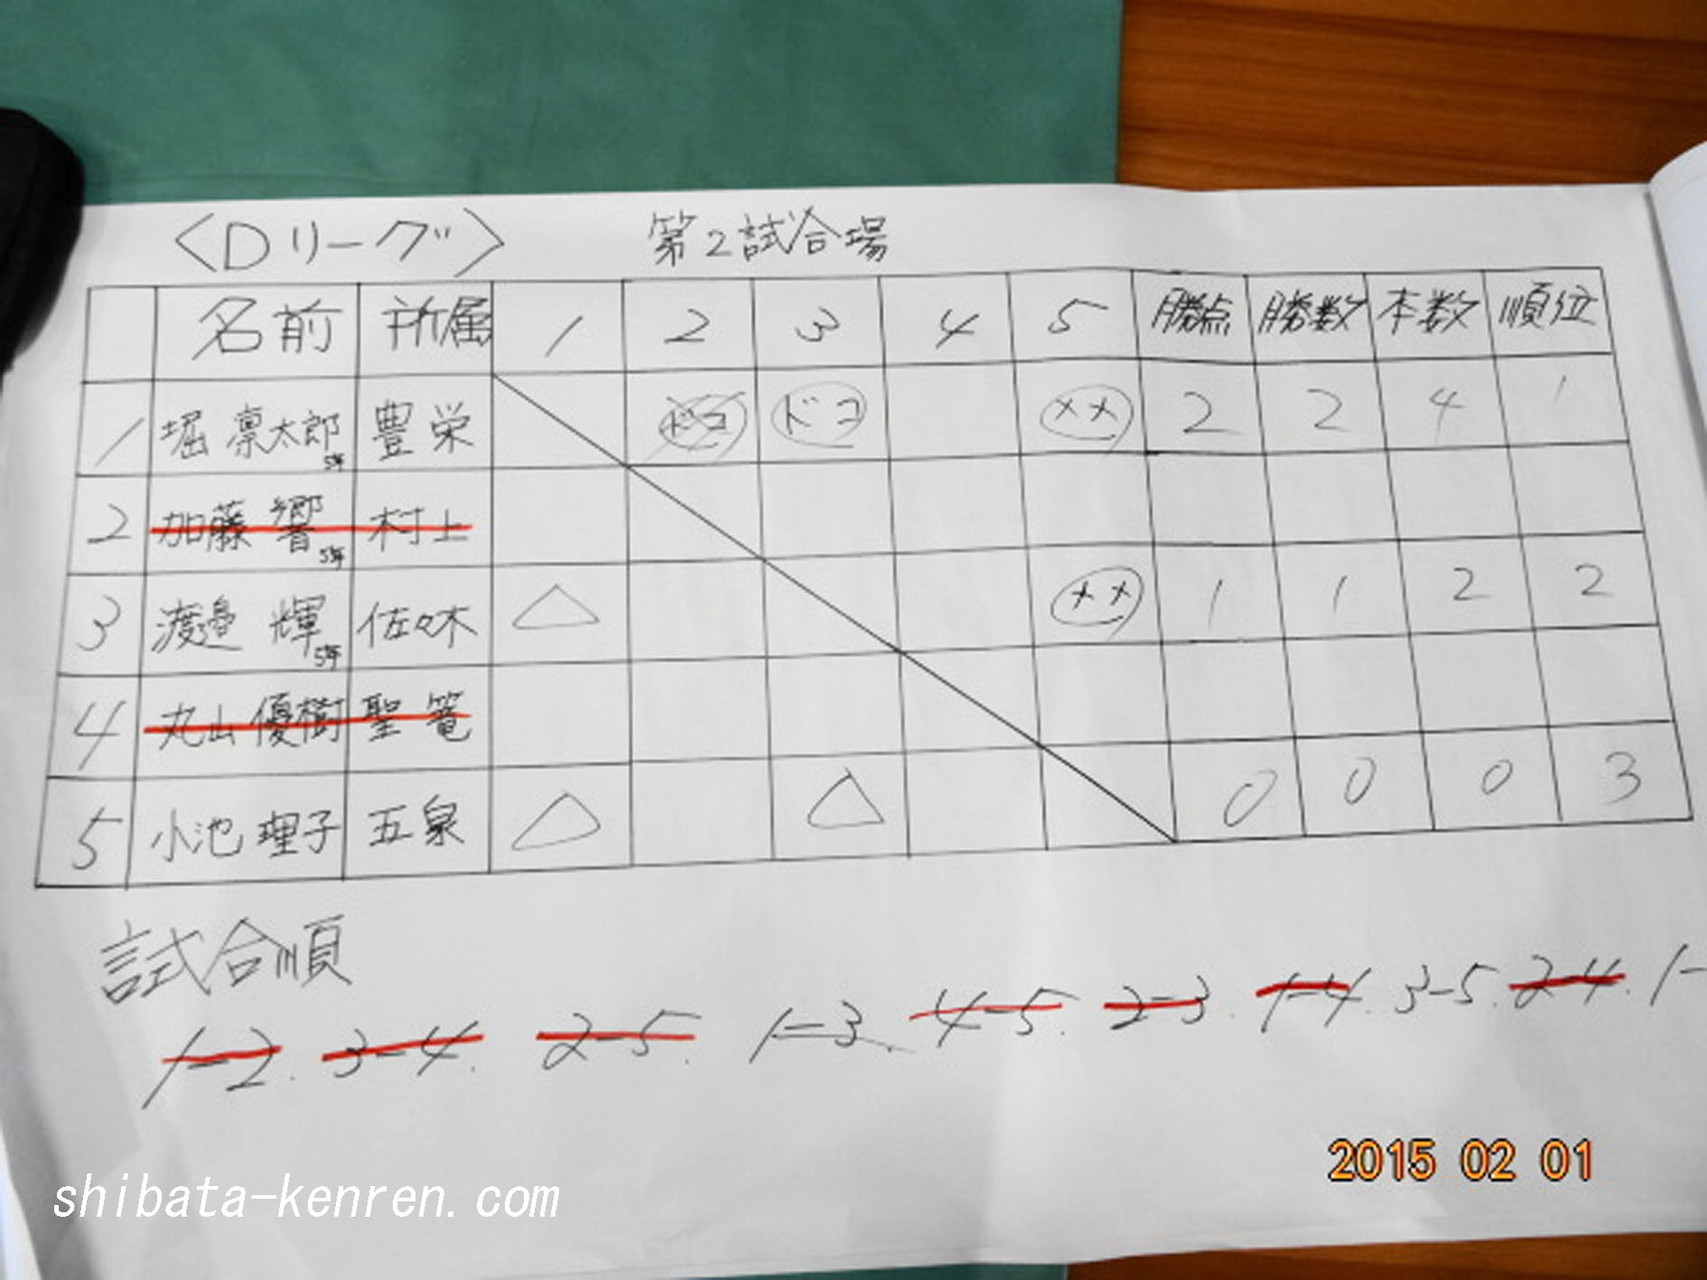 〈Dリーグ〉 第2試合場
名前 所属 1 2 3 4 5 勝点 勝数 本数 順位
1 堀 凛太郎 5年 豊栄 ドコ ドコ メメ 2 2 4 1
2 加藤 響 5年 村上
3 渡邉 輝 5年 佐々木 △ メメ 1 1 2 2
4 丸山 優樹 聖篭
5 小池 理子 五泉 △ △ 0 0 0 3
試合順
1-2. 3-4. 2-5. 1-3. 4-5. 2-3. 1-4. 3-5. 2-4. 1-
2015 02 01
shibata-kenren.com